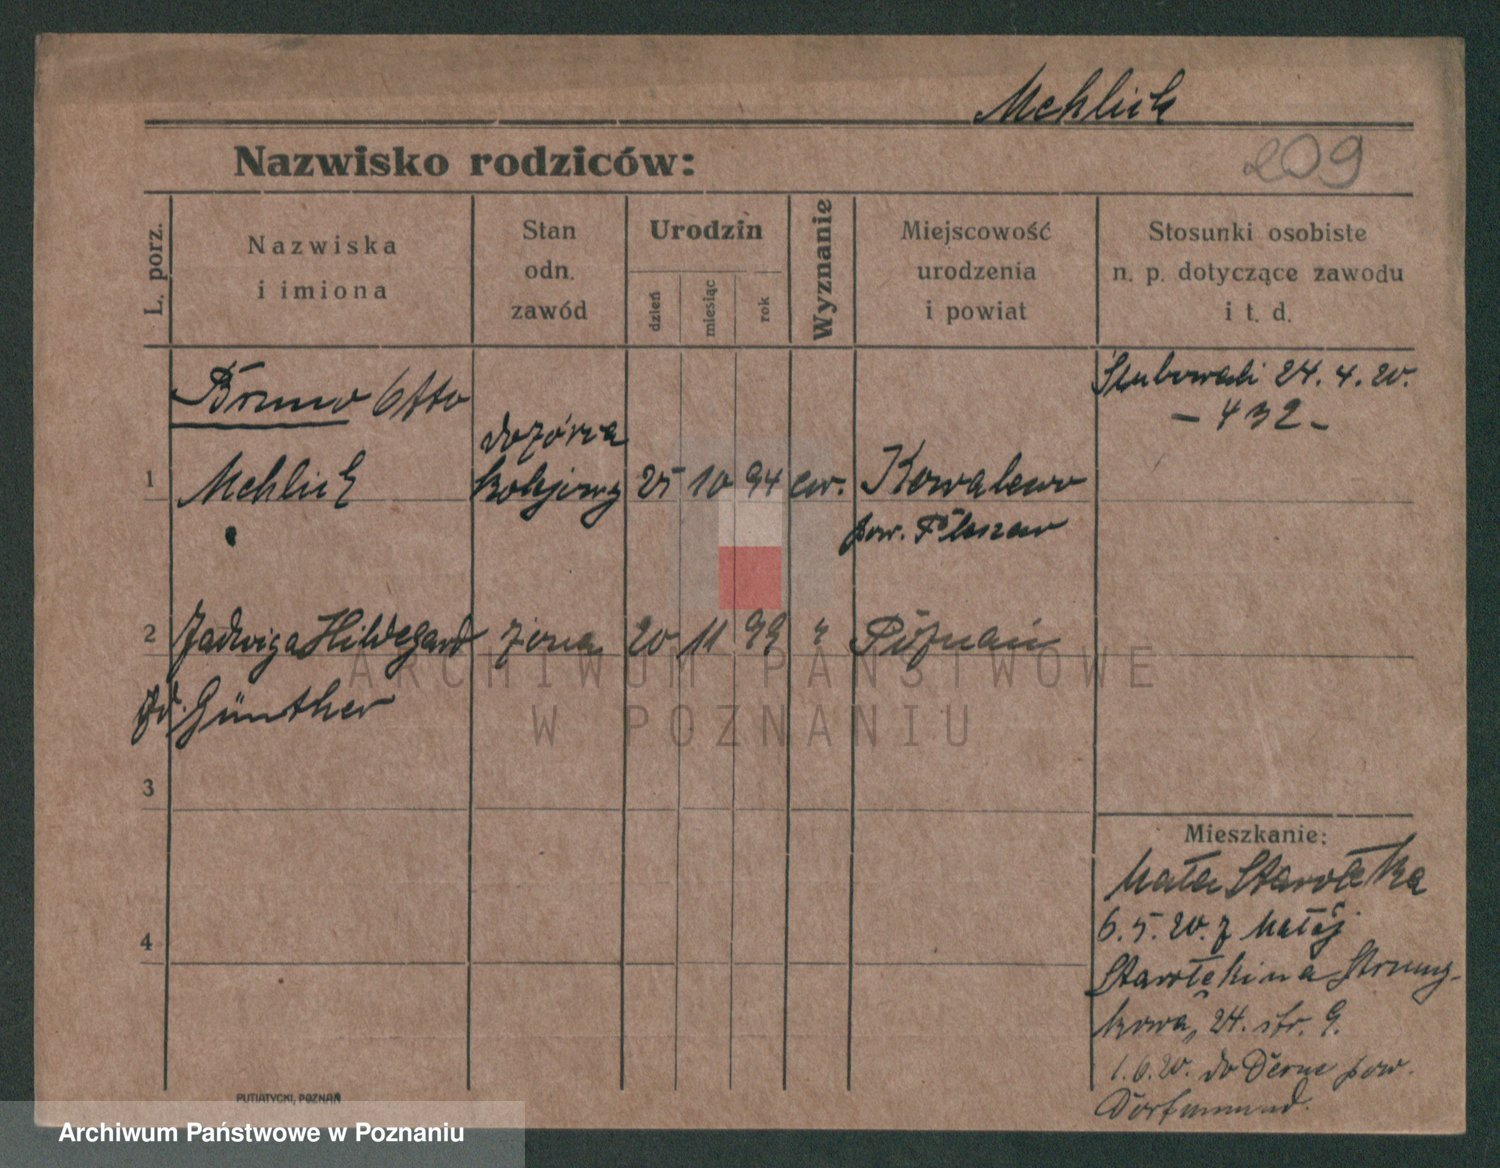 Mehlich
Nazwisko rodziców:
209
L. porz.
Nazwiska
i imiona
Stan
odn.
zawód
Urodzin
dzień
miesiąc
rok
Wyznanie
Miejscowość
urodzenia
i powiat
Stosunki osobiste
n. p. dotyczące zawodu
i t. d.
Bruno Otto
Ślubowali 24. 4. 20.
- 432 -
dozórca
1 Mehlich kolejowy 25 10 94 ew. Kowalewo
pow. Pleszew
2 Jadwiga Hildegard żona 20 11 99 " Poznań
ARCHIWUM PAŃSTWOWE
W POZNANIU
zd. Günther
3
4
Mieszkanie:
Mała Starołęka
6. 5. 20. z Małéj
Starołęki na Strumy-
kowa, 24. str. 9.
1. 6. 20. do Derne pow.
Dortmund.
PUTIATYCKI, POZNAŃ
Archiwum Państwowe w Poznaniu